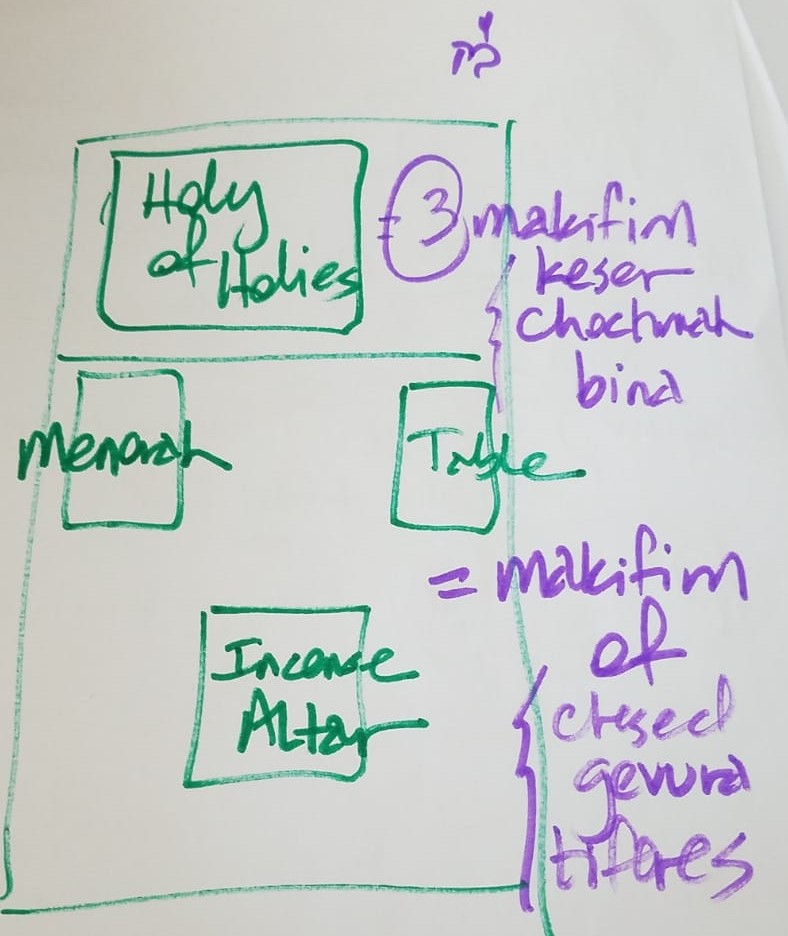 Holy
of Holies
= 3 makifim
keser
chochmah
bina
Menorah
Table
= makifim
of
chesed
gevura
tiferes
Incense
Altar